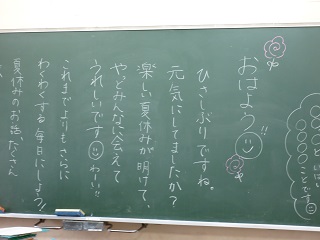 おはよう!!
ひさしぶりですね。
元気にしてましたか?
楽しい夏休みが明けて、
やっとみんなに会えて
うれしいです わーい!!
これまでよりもさらに
わくわくする毎日にしよう!!
夏休みのお話たくさん